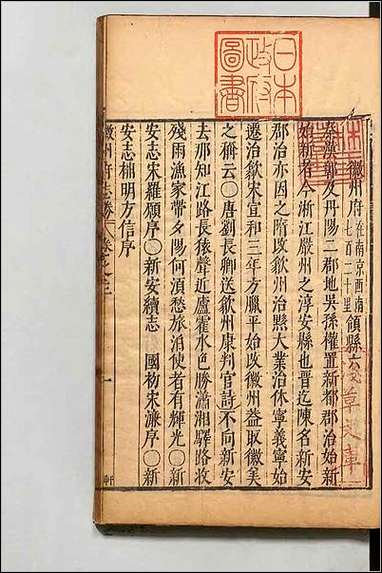 日本
政府
圖書
徽州府在南京西南七百二十里領縣六
秦漢鄣及丹陽二郡地吳孫權置新都郡治始新
始新者今浙江嚴州之淳安縣也晉迄陳名新安
郡治亦因之隋改歙州治黟大業治休寧義寧始
遷治歙宋宣和三年方臘平始改徽州益取徽美
之稱云〇唐劉長卿送歙州康判官詩不向新安
去那知江路長猿聲近廬霍水色勝瀟湘驛路收
殘雨漁家帶夕陽何湏愁旅泊使者有輝光〇新
安志宋羅願序〇新安續志 國初宋濂序〇新
安志 明方信序
徽州府志勝 卷之三 一